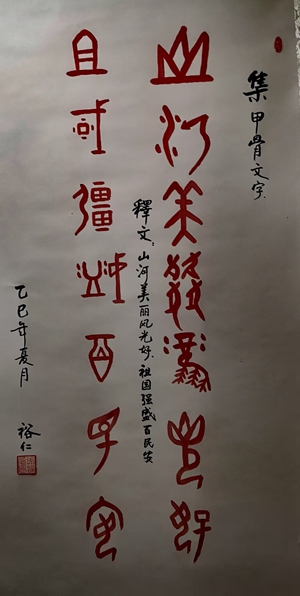 集甲骨文字.
山河美丽风光好
釋文:山河美丽风光好.祖国强盛百民安
且或彊盛百子安
乙巳年夏月
裕仁